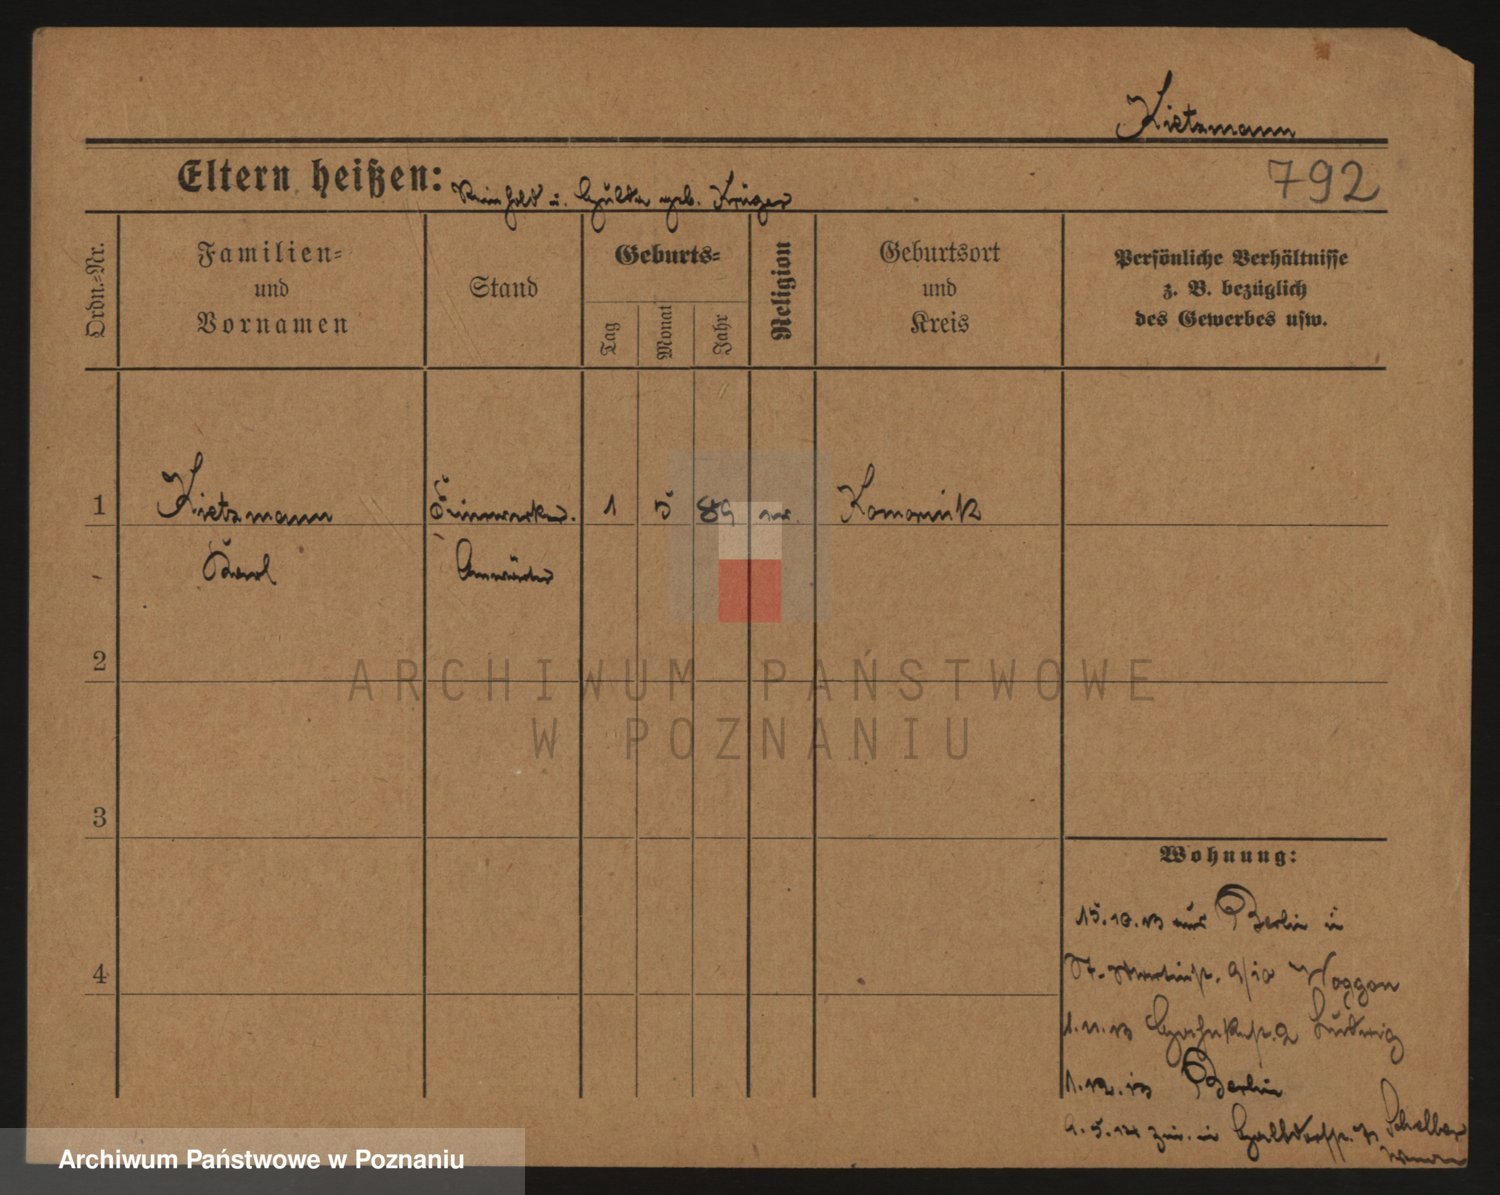 Kietzmann
792
Eltern heißen: Reinhold u. Hulda geb. Krüger
Ordn.-Nr.
Familien-
und
Vornamen
Stand
Geburts-
Tag
Monat
Jahr
Religion
Geburtsort
und
Kreis
Persönliche Verhältnisse
z. B. bezüglich
des Gewerbes usw.
1 Kietzmann 1 5 89 Komornik
Karl Anwärter
2
ARCHIWUM PAŃSTWOWE
W POZNANIU
3
4
Wohnung:
15.10.13 aus Berlin in
St. Martinstr. Woggon
1.11.13 2 Ludwig
1.12.13 Berlin
9.5.14 in
Archiwum Państwowe w Poznaniu